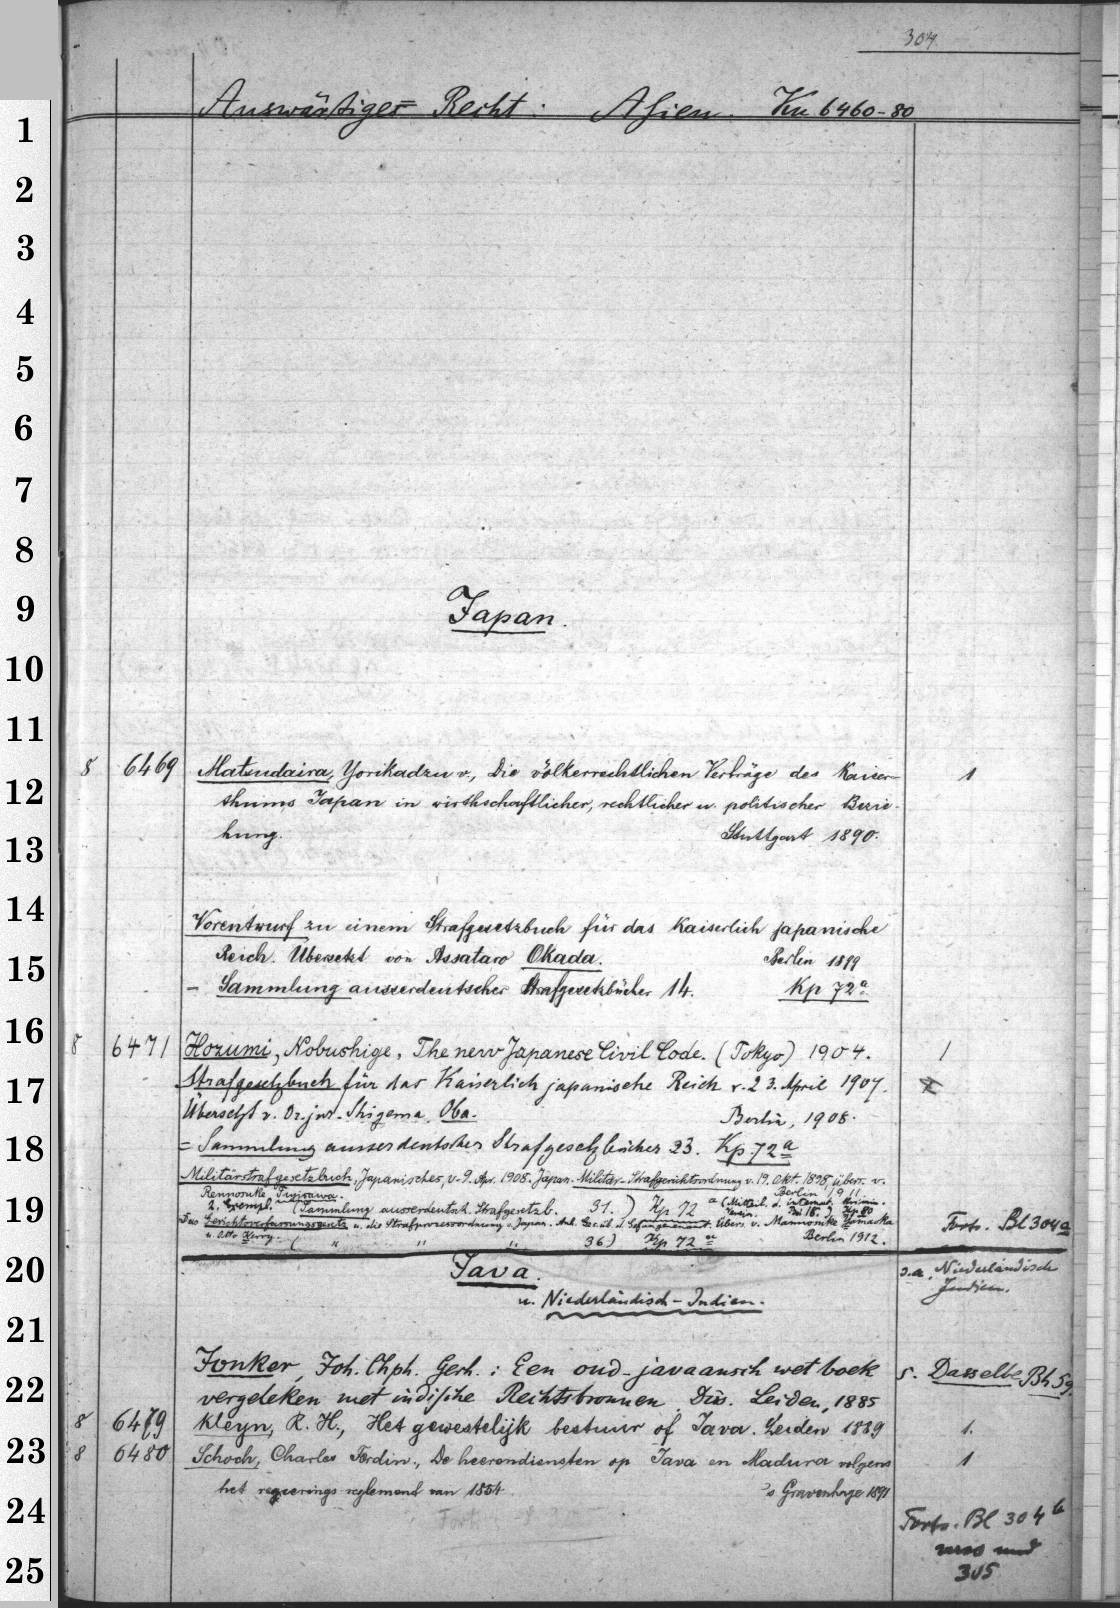 304
Auswärtiges Recht: Asien. Kn 6460-80
1
2
3
4
5
6
7
8
9
Japan.
10
11
8 6469 Matsudaira, Yorikadzu v., Die völkerrechtlichen Verträge des Kaiser- 1
12
thums Japan in wirthschaftlicher, rechtlicher u. politischer Bezie-
hung. Stuttgart 1890.
13
14
Vorentwurf zu einem Strafgesetzbuch für das Kaiserlich japanische
15
Reich. Übersetzt von Assataro Okada. Berlin 1899
= Sammlung ausserdeutscher Strafgesetzbücher 14. Kp 72a
16
8 6471 Hozumi, Nobushige, The new Japanese Civil Code. (Tokyo) 1904. 1
17
Strafgesetzbuch für das Kaiserlich japanische Reich v. 23. April 1907.
Übersetzt v. Dr. jur. Shigema Oba. Berlin, 1908.
18
= Sammlung ausserdeutscher Strafgesetzbücher 23. Kp 72a
Militärstrafgesetzbuch, Japanisches, v. 9. Apr. 1908. Japan. Militär-Strafgerichtsordnung v. 19. Okt. 1898, übers. v.
19
Fujisawa. Berlin 1911.
2. Exempl. (Sammlung ausserdeutsch. Strafgesetzb. 31.) Kp 72a
Das Gerichtsverfassungsgesetz u. die Strafprozessordnung v. Japan. übers. v. Yamaoka Forts. Bl 304a
( " " " 36) Kp 72a Berlin 1912.
20
Java. s.a. Niederländisch
u. Niederländisch-Indien. Indien.
21
Jonker, Joh. Chph. Gerh.: Een oud-javaansch wetboek s. Dasselbe
22
vergeleken met indische Rechtsbronnen. Diss. Leiden, 1885
8 6479 Kleyn, R. H., Het gewestelijk bestuur of Java. Leiden 1889 1.
23
8 6480 Schoch, Charles Ferdin., De heerendiensten op Java en Madura volgens 1
het regeerings reglement van 1854. 's Gravenhage 1891
24
Forts. Bl 304b
verso und
25
305